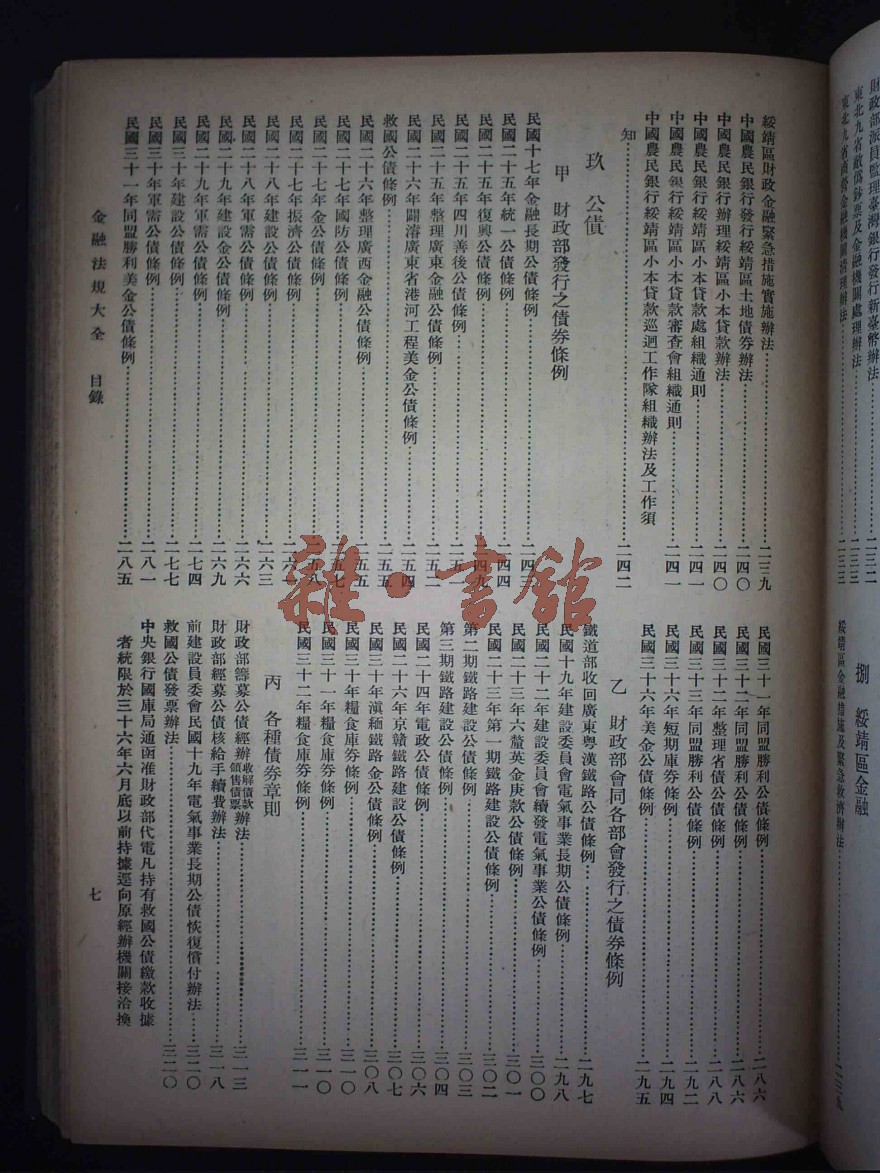 財政部派員監理臺灣銀行發行新臺幣辦法……二三二
東北九省敵偽鈔票及金融機關處理辦法……二三三
東北九省商營金融機關清理辦法……二三三
捌 綏靖區金融
綏靖區金融措施及緊急救濟辦法……二三九
綏靖區財政金融緊急措施實施辦法……二三九
中國農民銀行發行綏靖區土地債券辦法……二四〇
中國農民銀行辦理綏靖區小本貸款辦法……二四〇
中國農民銀行綏靖區小本貸款處組織通則……二四一
中國農民銀行綏靖區小本貸款審查會組織通則……二四一
中國農民銀行綏靖區小本貸款巡迴工作隊組織辦法及工作須
知……二四二
玖 公債
甲 財政部發行之債券條例
民國十七年金融長期公債條例……二四三
民國二十五年統一公債條例……二四四
民國二十五年復興公債條例……二四九
民國二十五年四川善後公債條例……二五一
民國二十五年整理廣東金融公債條例……二五二
民國二十六年開濬廣東省港河工程美金公債條例……二五四
救國公債條例……二五五
民國二十六年整理廣西金融公債條例……二五五
民國二十七年國防公債條例……二五七
民國二十七年金公債條例……二五八
民國二十七年振濟公債條例……二六一
民國二十八年建設公債條例……二六三
民國二十八年軍需公債條例……二六六
民國二十九年建設金公債條例……二六九
民國二十九年軍需公債條例……二七四
民國三十年建設公債條例……二七七
民國三十年軍需公債條例……二八一
民國三十一年同盟勝利美金公債條例……二八五
民國三十一年同盟勝利公債條例……二八六
民國三十二年同盟勝利公債條例……二八六
民國三十二年整理省債公債條例……二八八
民國三十三年同盟勝利公債條例……二九二
民國三十六年短期庫券條例……二九四
民國三十六年美金公債條例……二九五
乙 財政部會同各部會發行之債券條例
鐵道部收回廣東粵漢鐵路公債條例……二九七
民國十九年建設委員會電氣事業長期公債條例……二九八
民國二十二年建設委員會續發電氣事業公債條例……三〇〇
民國二十三年六釐英金庚款公債條例……三〇一
民國二十三年第一期鐵路建設公債條例……三〇二
第二期鐵路建設公債條例……三〇三
第三期鐵路建設公債條例……三〇四
民國二十四年電政公債條例……三〇六
民國二十六年京贛鐵路建設公債條例……三〇七
民國三十年滇緬鐵路金公債條例……三〇八
民國三十年糧食庫券條例……三一〇
民國三十一年糧食庫券條例……三一〇
民國三十二年糧食庫券條例……三一一
丙 各種債券章則
財政部籌募公債經辦收解債款領售債票辦法……三一三
財政部經募公債核給手續費辦法……三一八
前建設員委會民國十九年電氣事業長期公債恢復償付辦法……三二〇
救國公債發票辦法……三二〇
中央銀行國庫局通函准財政部代電凡持有救國公債繳款收據
者統限於三十六年六月底以前持據逕向原經辦機關接洽換
金融法規大全 目錄
七
雜·書館